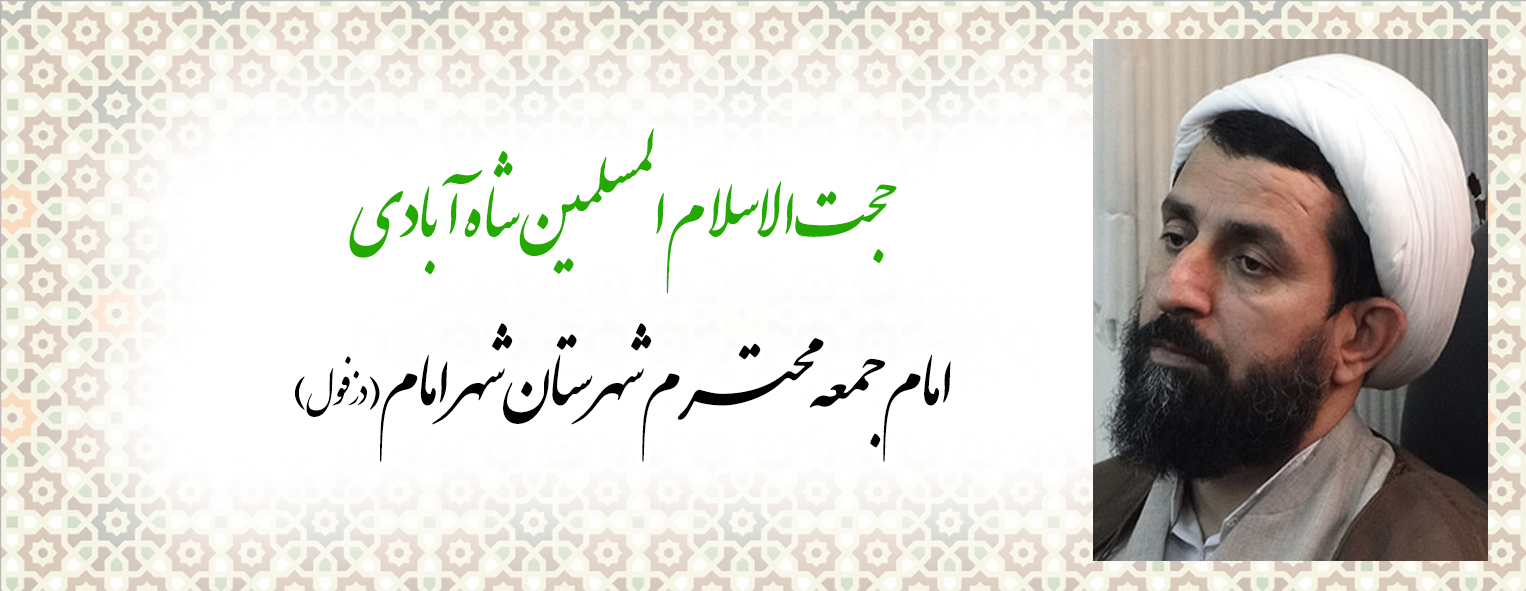 حجت الاسلام المسلمین شاه آبادی
امام جمعه محترم شهرستان شهر امام (دزفول)